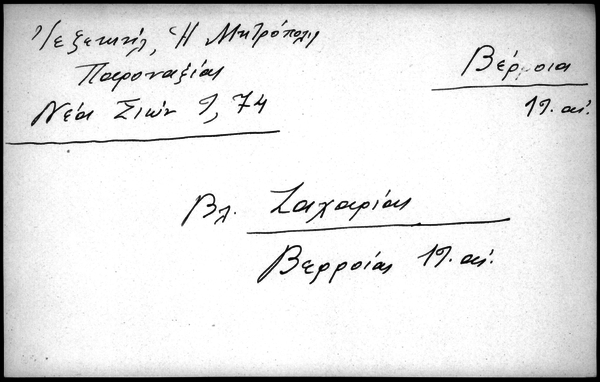 Ἰεζεκιήλ, Ἡ Μητρόπολις
Παροναξίας
Νέα Σιών 9, 74
Βέρροια
17. αἰ.
Βλ. Ζαχαρίας
Βερροίας 17. αἰ.